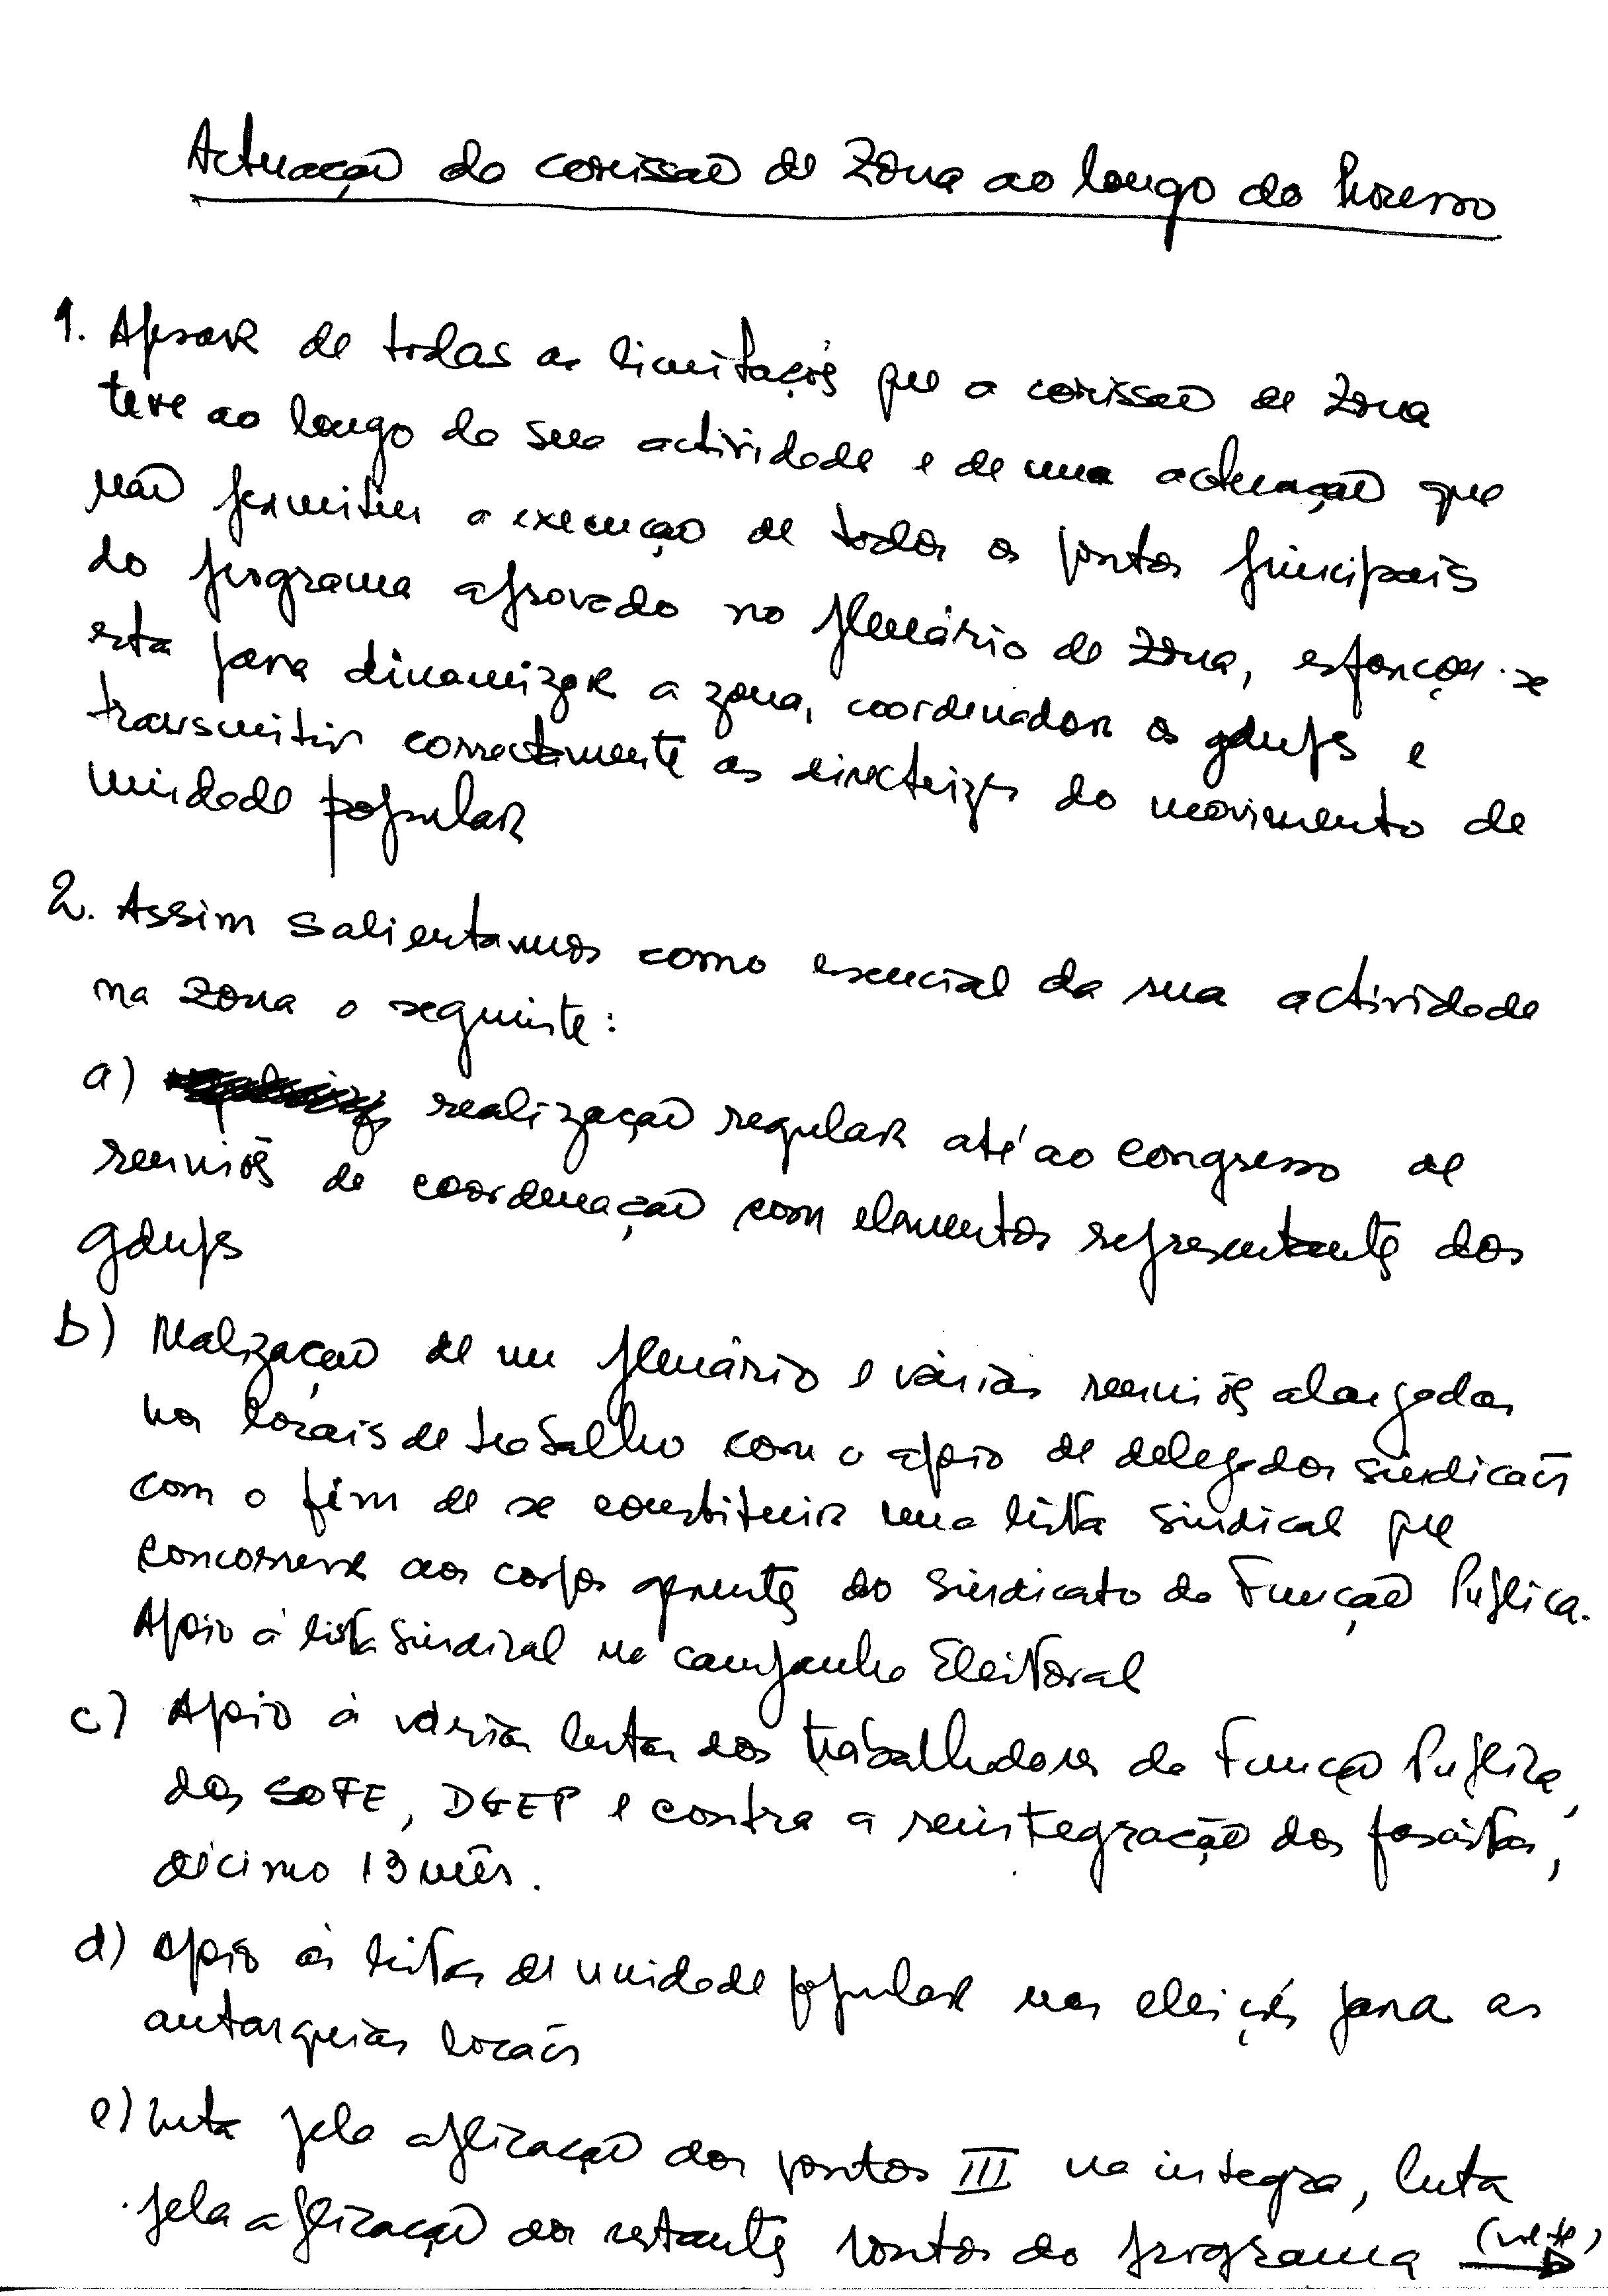 Actuação da comissão de Zona ao longo do Processo
1. Apesar de todas as limitações que a comissão de Zona
teve ao longo da sua actividade e de uma actuação que
não permitiu a execução de todos os pontos principais
do programa aprovado no plenário de Zona, esforçou-se
esta para dinamizar a zona, coordenador os gdups e
transmitir correctamente as directrizes do movimento de
unidade popular
2. Assim salientamos como esencial da sua actividade
na Zona o seguinte:
a) realização regular até ao congresso de
reuniões de coordenação com elementos representantes dos
gdups
b) Realização de um plenário e várias reuniões alargadas
nos locais de trabalho com o apoio de delegados sindicais
com o fim de se constituir uma lista sindical que
concorrera aos corpos gerentes do Sindicato da Função Publica.
Apoio à lista Sindical na campanha Eleitoral
c) Apoio à várias lutas dos trabalhadores da Função Publica,
dos SOFE, DGEP e contra a reintegração dos fascistas,
décimo 13 mês.
d) Apoio às listas de unidade popular nas eleições para as
autarquias locais
e) Luta pela aplicação dos pontos III na integra, luta
pela aplicação dos restantes pontos do programa (volte)